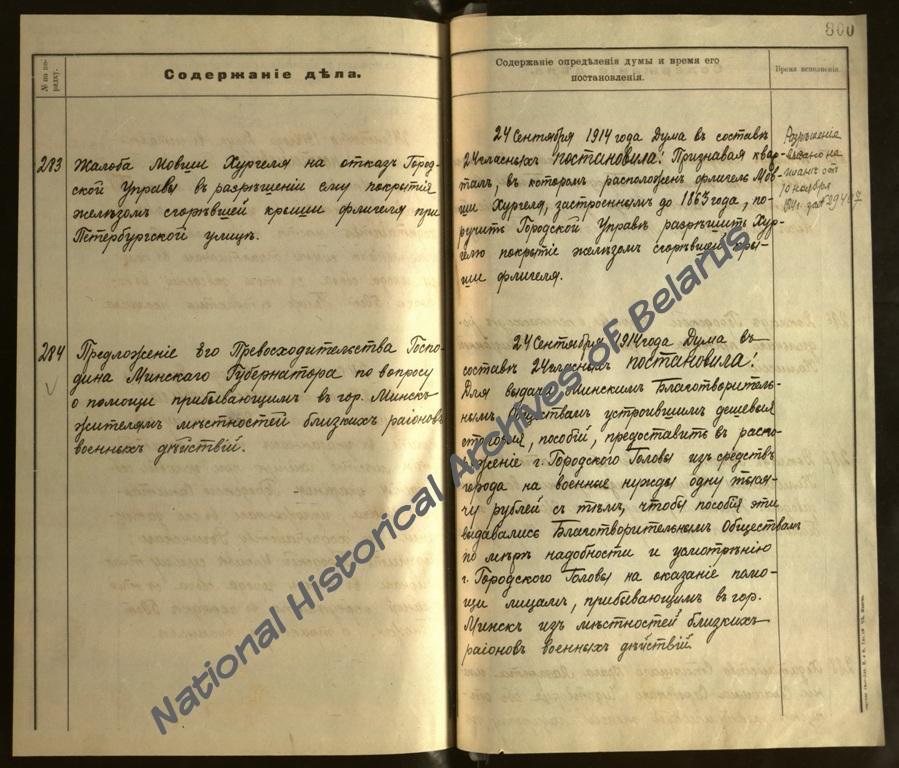 № по по-
рядку.
Содержаніе дѣла.
283 Жалоба Мовши Хургеля на отказъ Город-
ской Управы въ разрѣшеніи ему покрытія
желѣзомъ сгорѣвшей крыши флигеля при
Петербургской улицѣ.
284 Предложеніе Его Превосходительства Госпо-
дина Минскаго Губернатора по вопросу
о помощи прибывающимъ въ гор. Минскъ
жителямъ мѣстностей близкихъ раіоновъ
военныхъ дѣйствій.
800
Содержаніе опредѣленія думы и время его
постановленія.
Время исполненія.
24 Сентября 1914 года Дума въ составѣ
24 гласныхъ постановила: Признавая квар-
талъ, въ которомъ расположенъ флигель Мов-
ши Хургеля, застроеннымъ до 1863 года, по-
ручить Городской Управѣ разрѣшить Хур-
гелю покрытіе желѣзомъ сгорѣвшей кры-
ши флигеля.
Разрѣшеніе
на
отъ
10 ноября
24 Сентября 1914 года Дума въ
составѣ 24 гласныхъ постановила:
Для выдачи Минскимъ Благотворитель-
нымъ Обществамъ устроившимъ дешевыя
столовыя, пособій, предоставить въ распо-
ряженіе г. Городского Головы изъ средствъ
города на военныя нужды одну тыся-
чу рублей съ тѣмъ, чтобы пособія эти
выдавались Благотворительнымъ Обществамъ
по мѣрѣ надобности и усмотрѣнію
г. Городского Головы на оказаніе помо-
щи лицамъ, прибывающимъ въ гор.
Минскъ изъ мѣстностей близкихъ
раіоновъ военныхъ дѣйствій.
National Historical Archives of Belarus